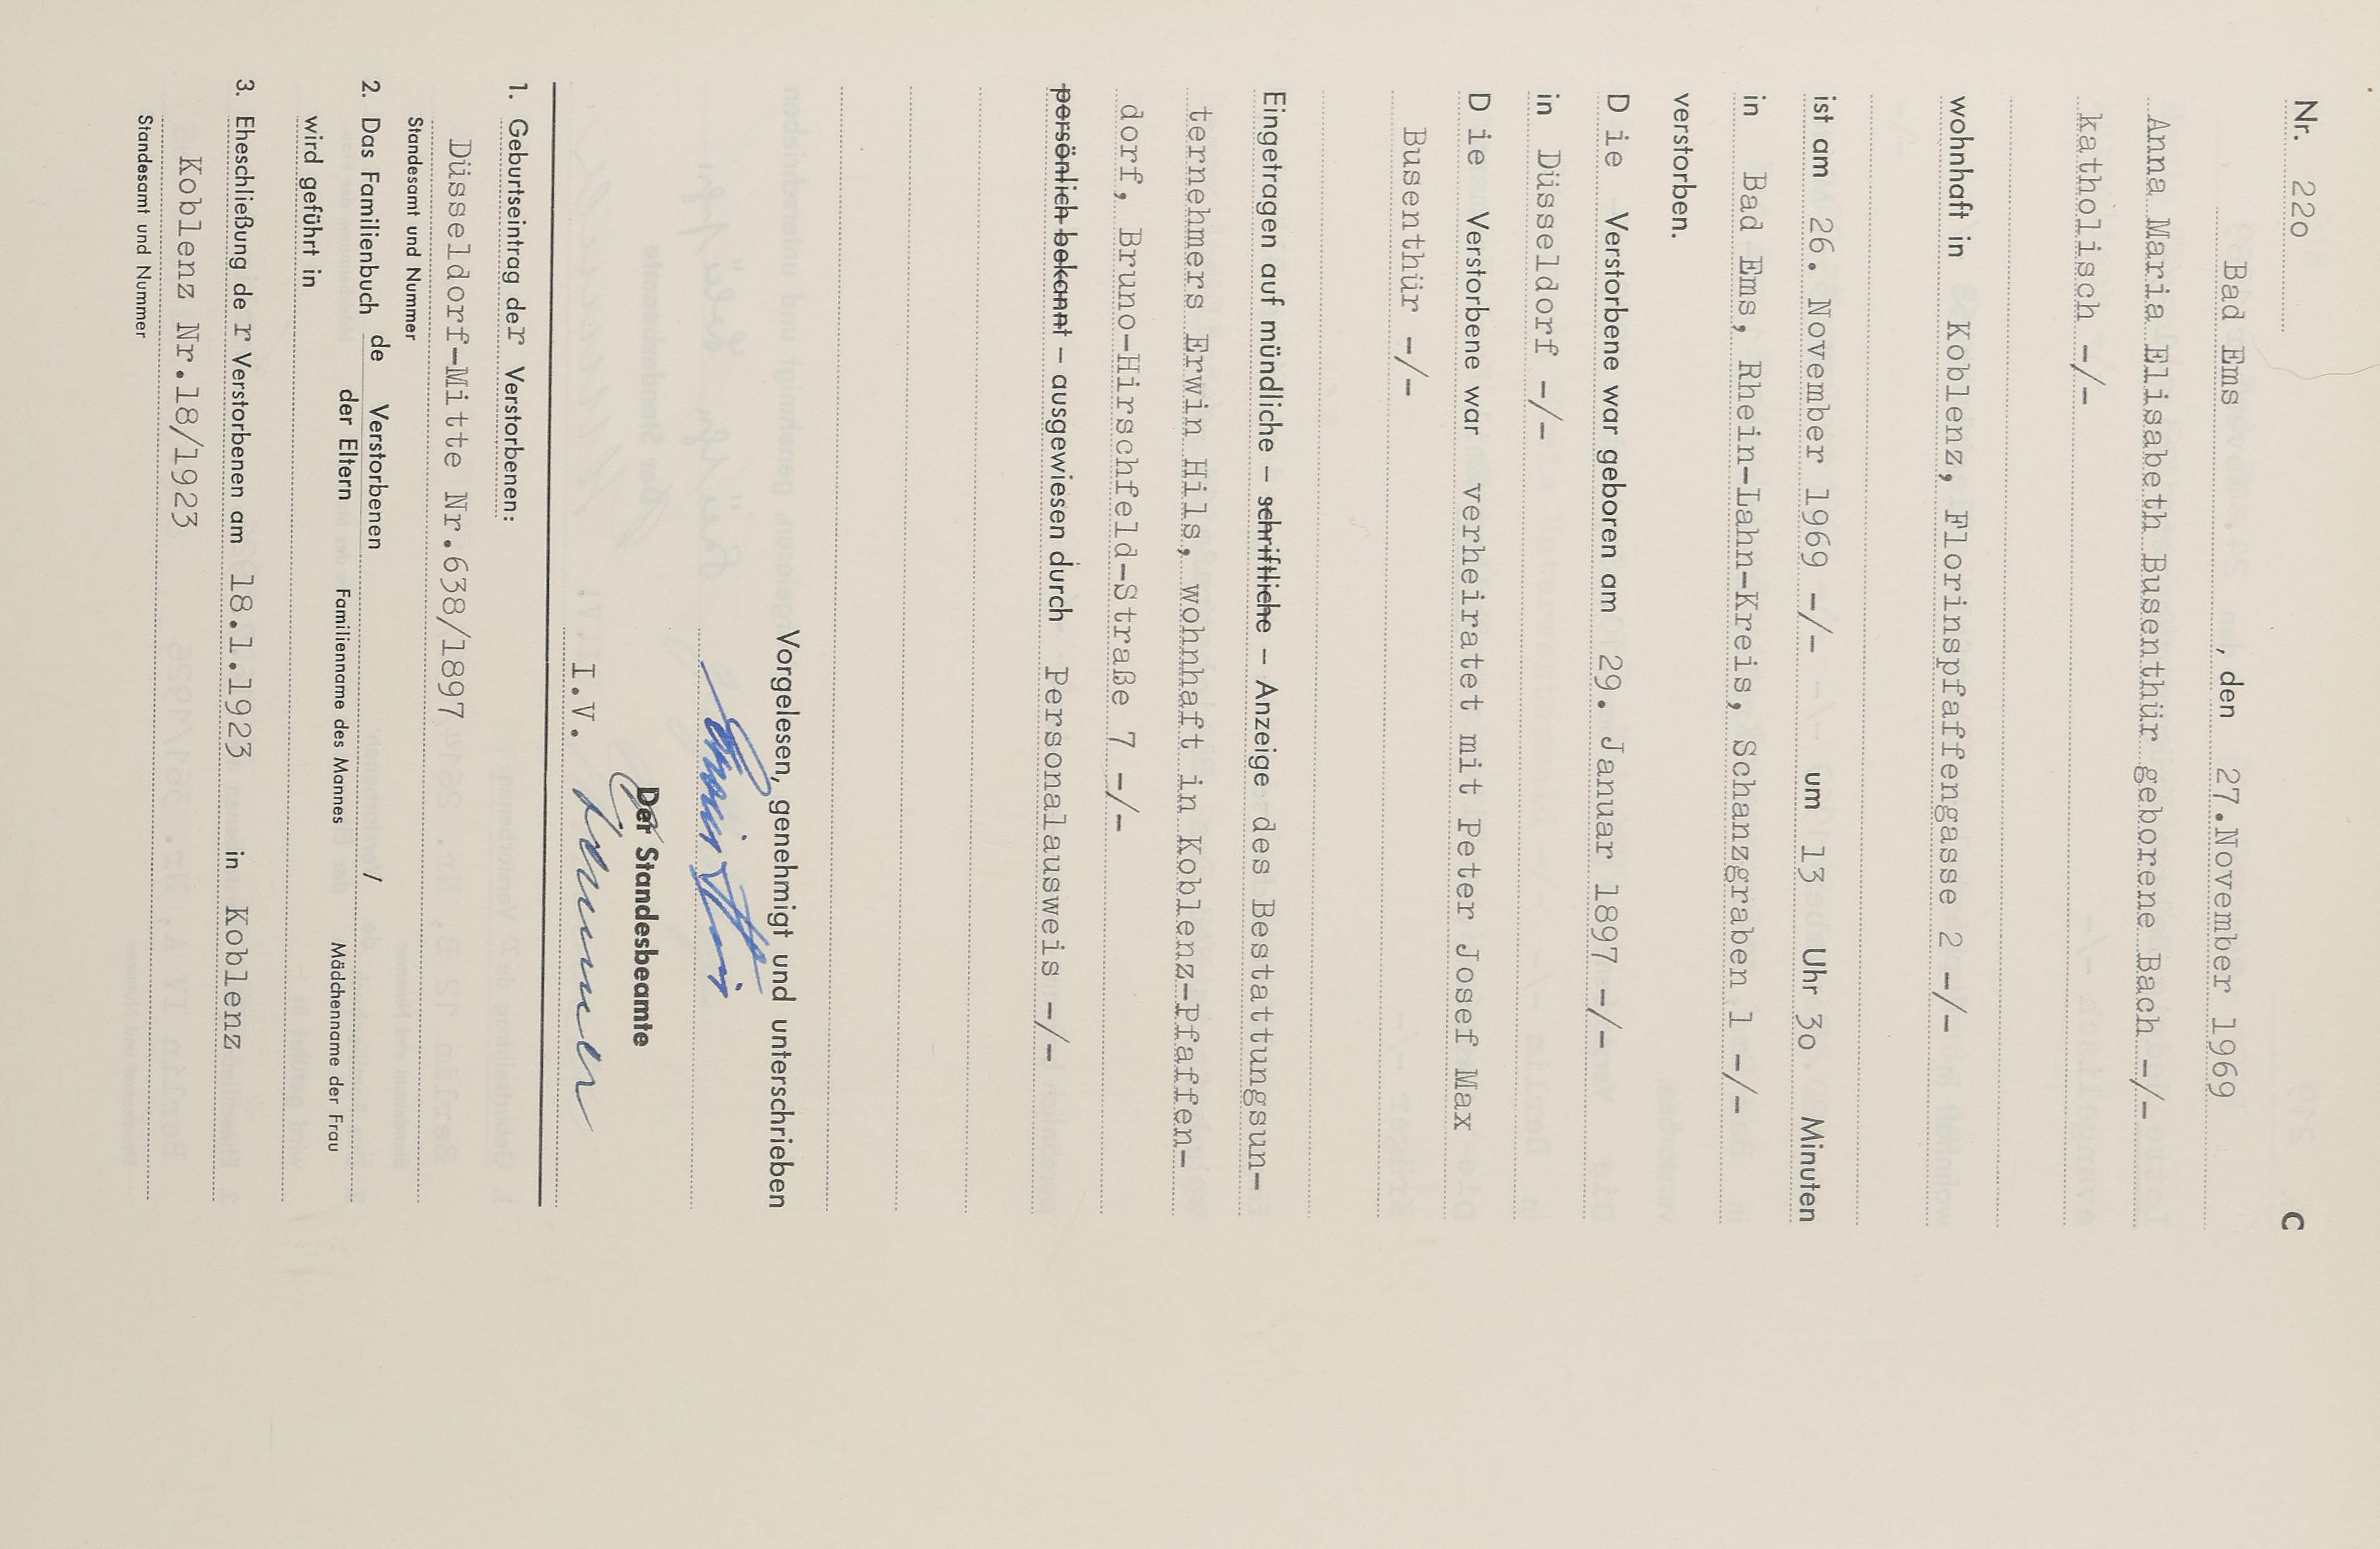 Nr. 22o C
Bad Ems, den 27.November 1969
Anna Maria Elisabeth Busenthür geborene Bach -/-
katholisch -/-
wohnhaft in Koblenz, Florinspfaffengasse 2 -/-
ist am 26. November 1969 -/- um 13 Uhr 3o Minuten
in Bad Ems, Rhein-Lahn-Kreis, Schanzgraben 1 -/-
verstorben.
D ie Verstorbene war geboren am 29. Januar 1897 -/-
in Düsseldorf -/-
D ie Verstorbene war verheiratet mit Peter Josef Max
Busenthür -/-
Eingetragen auf mündliche - schriftliche - Anzeige des Bestattungsun-
ternehmers Erwin Hils, wohnhaft in Koblenz-Pfaffen-
dorf, Bruno-Hirschfeld-Straße 7 -/-
persönlich bekannt - ausgewiesen durch Personalausweis -/-
Vorgelesen, genehmigt und unterschrieben
Erwin Hils
Der Standesbeamte
I.V.
1. Geburtseintrag der Verstorbenen:
Düsseldorf-Mitte Nr.638/1897
Standesamt und Nummer
2. Das Familienbuch de Verstorbenen /
der Eltern Familienname des Mannes Mädchenname der Frau
wird geführt in
3. Eheschließung de r Verstorbenen am 18.1.1923 in Koblenz
Koblenz Nr.18/1923
Standesamt und Nummer